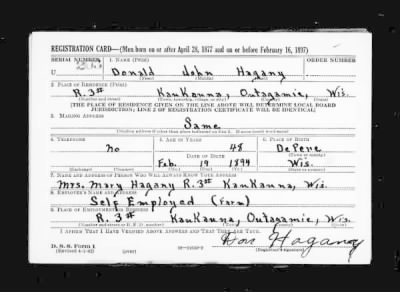 REGISTRATION CARD—(Men born on or after April 28, 1877 and on or before February 16, 1897)
SERIAL NUMBER 1. NAME (Print) ORDER NUMBER
U Donald John Hagany
(First) (Middle) (Last)
2. PLACE OF RESIDENCE (Print)
R. 3st Kaukauna, Outagamie, Wis.
(Number and street) (Town, township, village, or city) (County) (State)
[THE PLACE OF RESIDENCE GIVEN ON THE LINE ABOVE WILL DETERMINE LOCAL BOARD
JURISDICTION; LINE 2 OF REGISTRATION CERTIFICATE WILL BE IDENTICAL]
3. MAILING ADDRESS
Same
[Mailing address if other than place indicated on line 2. If same insert word same]
4. TELEPHONE 5. AGE IN YEARS 6. PLACE OF BIRTH
No 48 DePere
DATE OF BIRTH (Town or county)
Feb. 19 1894 Wis.
(Exchange) (Number) (Mo.) (Day) (Yr.) (State or country)
7. NAME AND ADDRESS OF PERSON WHO WILL ALWAYS KNOW YOUR ADDRESS
Mrs. Mary Hagany R. 3st Kaukauna, Wis.
8. EMPLOYER'S NAME AND ADDRESS
Self Employed (Farm)
9. PLACE OF EMPLOYMENT OR BUSINESS
R. 3st Kaukauna, Outagamie, Wis.
(Number and street or R. F. D. number) (Town) (County) (State)
I AFFIRM THAT I HAVE VERIFIED ABOVE ANSWERS AND THAT THEY ARE TRUE.
D. S. S. Form 1
(Revised 4-1-42) (over)
Don Hagany
(Registrant's signature)